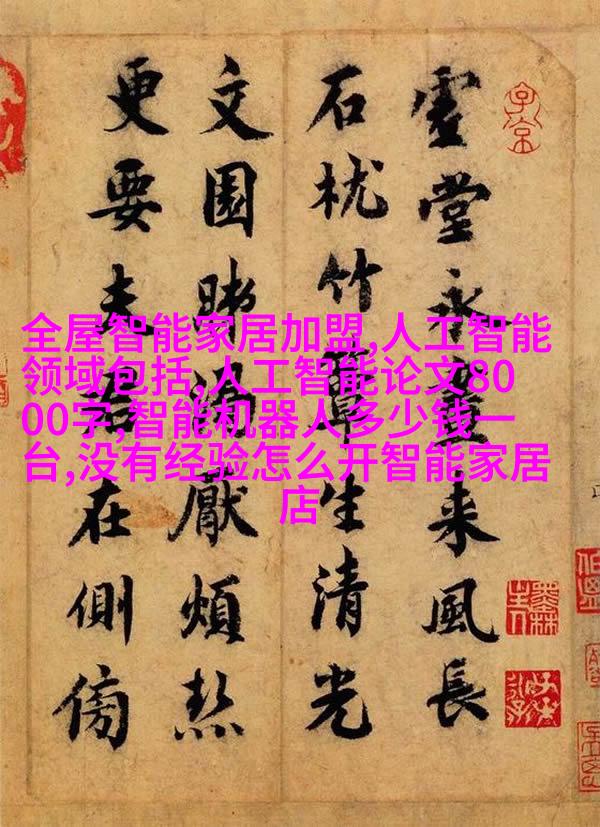 堂永晝来風長
石枕竹簟生清光
文園渴厭煩熱
更要夫在側傍
全屋智能家居加盟,人工智能
领域包括,人工智能论文80
00字,智能机器人多少钱一
台,没有经验怎么开智能家居
店